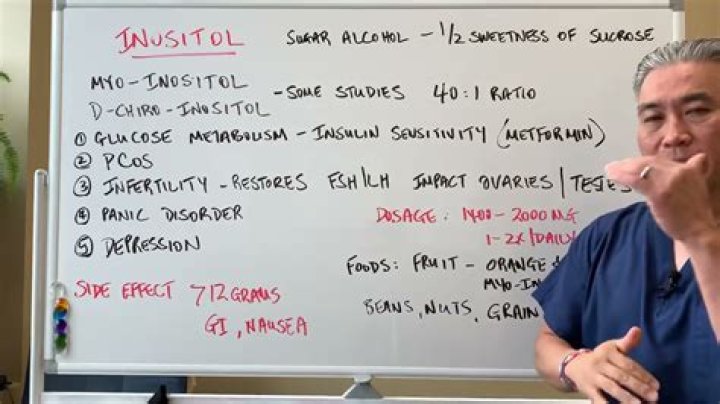 INUSITOL
SUGAR ALCOHOL - 1/2 SWEETNESS OF SUCROSE
MYO-INOSITOL
D-CHIRO-INOSITOL
- SOME STUDIES 40:1 RATIO
① GLUCOSE METABOLISM - INSULIN SENSITIVITY (METFORMIN)
② PCOS
③ INFERTILITY - RESTORES FSH/LH IMPACT OVARIES / TESTES
④ PANIC DISORDER
DOSAGE: 1400 - 2000 MG
1-2X/DAILY
⑤ DEPRESSION
FOODS: FRUIT - ORANGE
MYO-IN
BEANS, NUTS, GRAIN
SIDE EFFECT >12 GRAMS
GI, NAUSEA